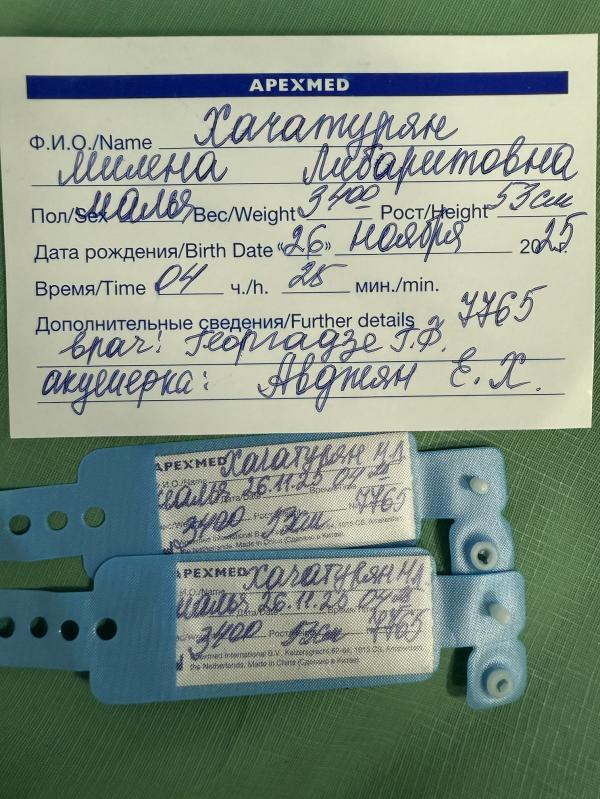 APEXMED
Ф.И.О./Name Хачатурян
Милена Либаритовна
Пол/Sex малья Вес/Weight 3400 Рост/Height 53 см
Дата рождения/Birth Date «26» ноября 2025.
Время/Time 04 ч./h. 25 мин./min.
Дополнительные сведения/Further details 7765
врач: Георгадзе Г.Ф.
акушерка: Авджян Е. Х.
APEXMED Хачатурян М.Л.
малья 26.11.25 04 25
3400 53см 7765
1015 CS, Amsterdam,
the Netherlands. Made in China (Сделано в Китае)
APEXMED Хачатурян М.Л.
Ф.И.О./Name
малья 26.11.25 04 25
3400 Рост 53см 7765
Apexmed International B.V., Keizersgracht 62-64, 1015 CS, Amsterdam,
the Netherlands. Made in China (Сделано в Китае)